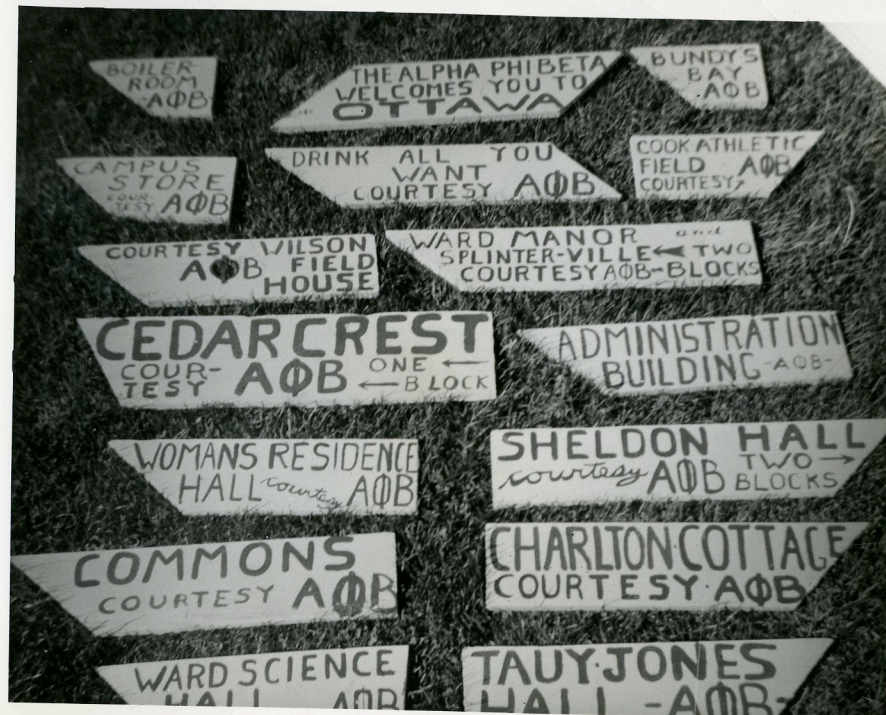 BOILER-
ROOM
-ΑΦΒ-
THE ALPHA PHI BETA
WELCOMES YOU TO
OTTAWA
BUNDYS
BAY
ΑΦΒ
CAMPUS
STORE
COUR-
TESY ΑΦΒ
DRINK ALL YOU
WANT
COURTESY ΑΦΒ
COOK ATHLETIC
FIELD ΑΦΒ
COURTESY↗
COURTESY WILSON
ΑΦΒ FIELD
HOUSE
WARD MANOR and
SPLINTER-VILLE ← TWO
COURTESY ΑΦΒ-BLOCKS
CEDAR CREST
COUR- ΑΦΒ ONE ←
TESY ← BLOCK
ADMINISTRATION
BUILDING -ΑΦΒ-
WOMANS RESIDENCE
HALL courtesy ΑΦΒ
SHELDON HALL
courtesy ΑΦΒ TWO →
BLOCKS
COMMONS
COURTESY ΑΦΒ
CHARLTON·COTTAGE
COURTESY·ΑΦΒ
WARD SCIENCE
HALL ΑΦΒ
TAUY·JONES
HALL -ΑΦΒ-